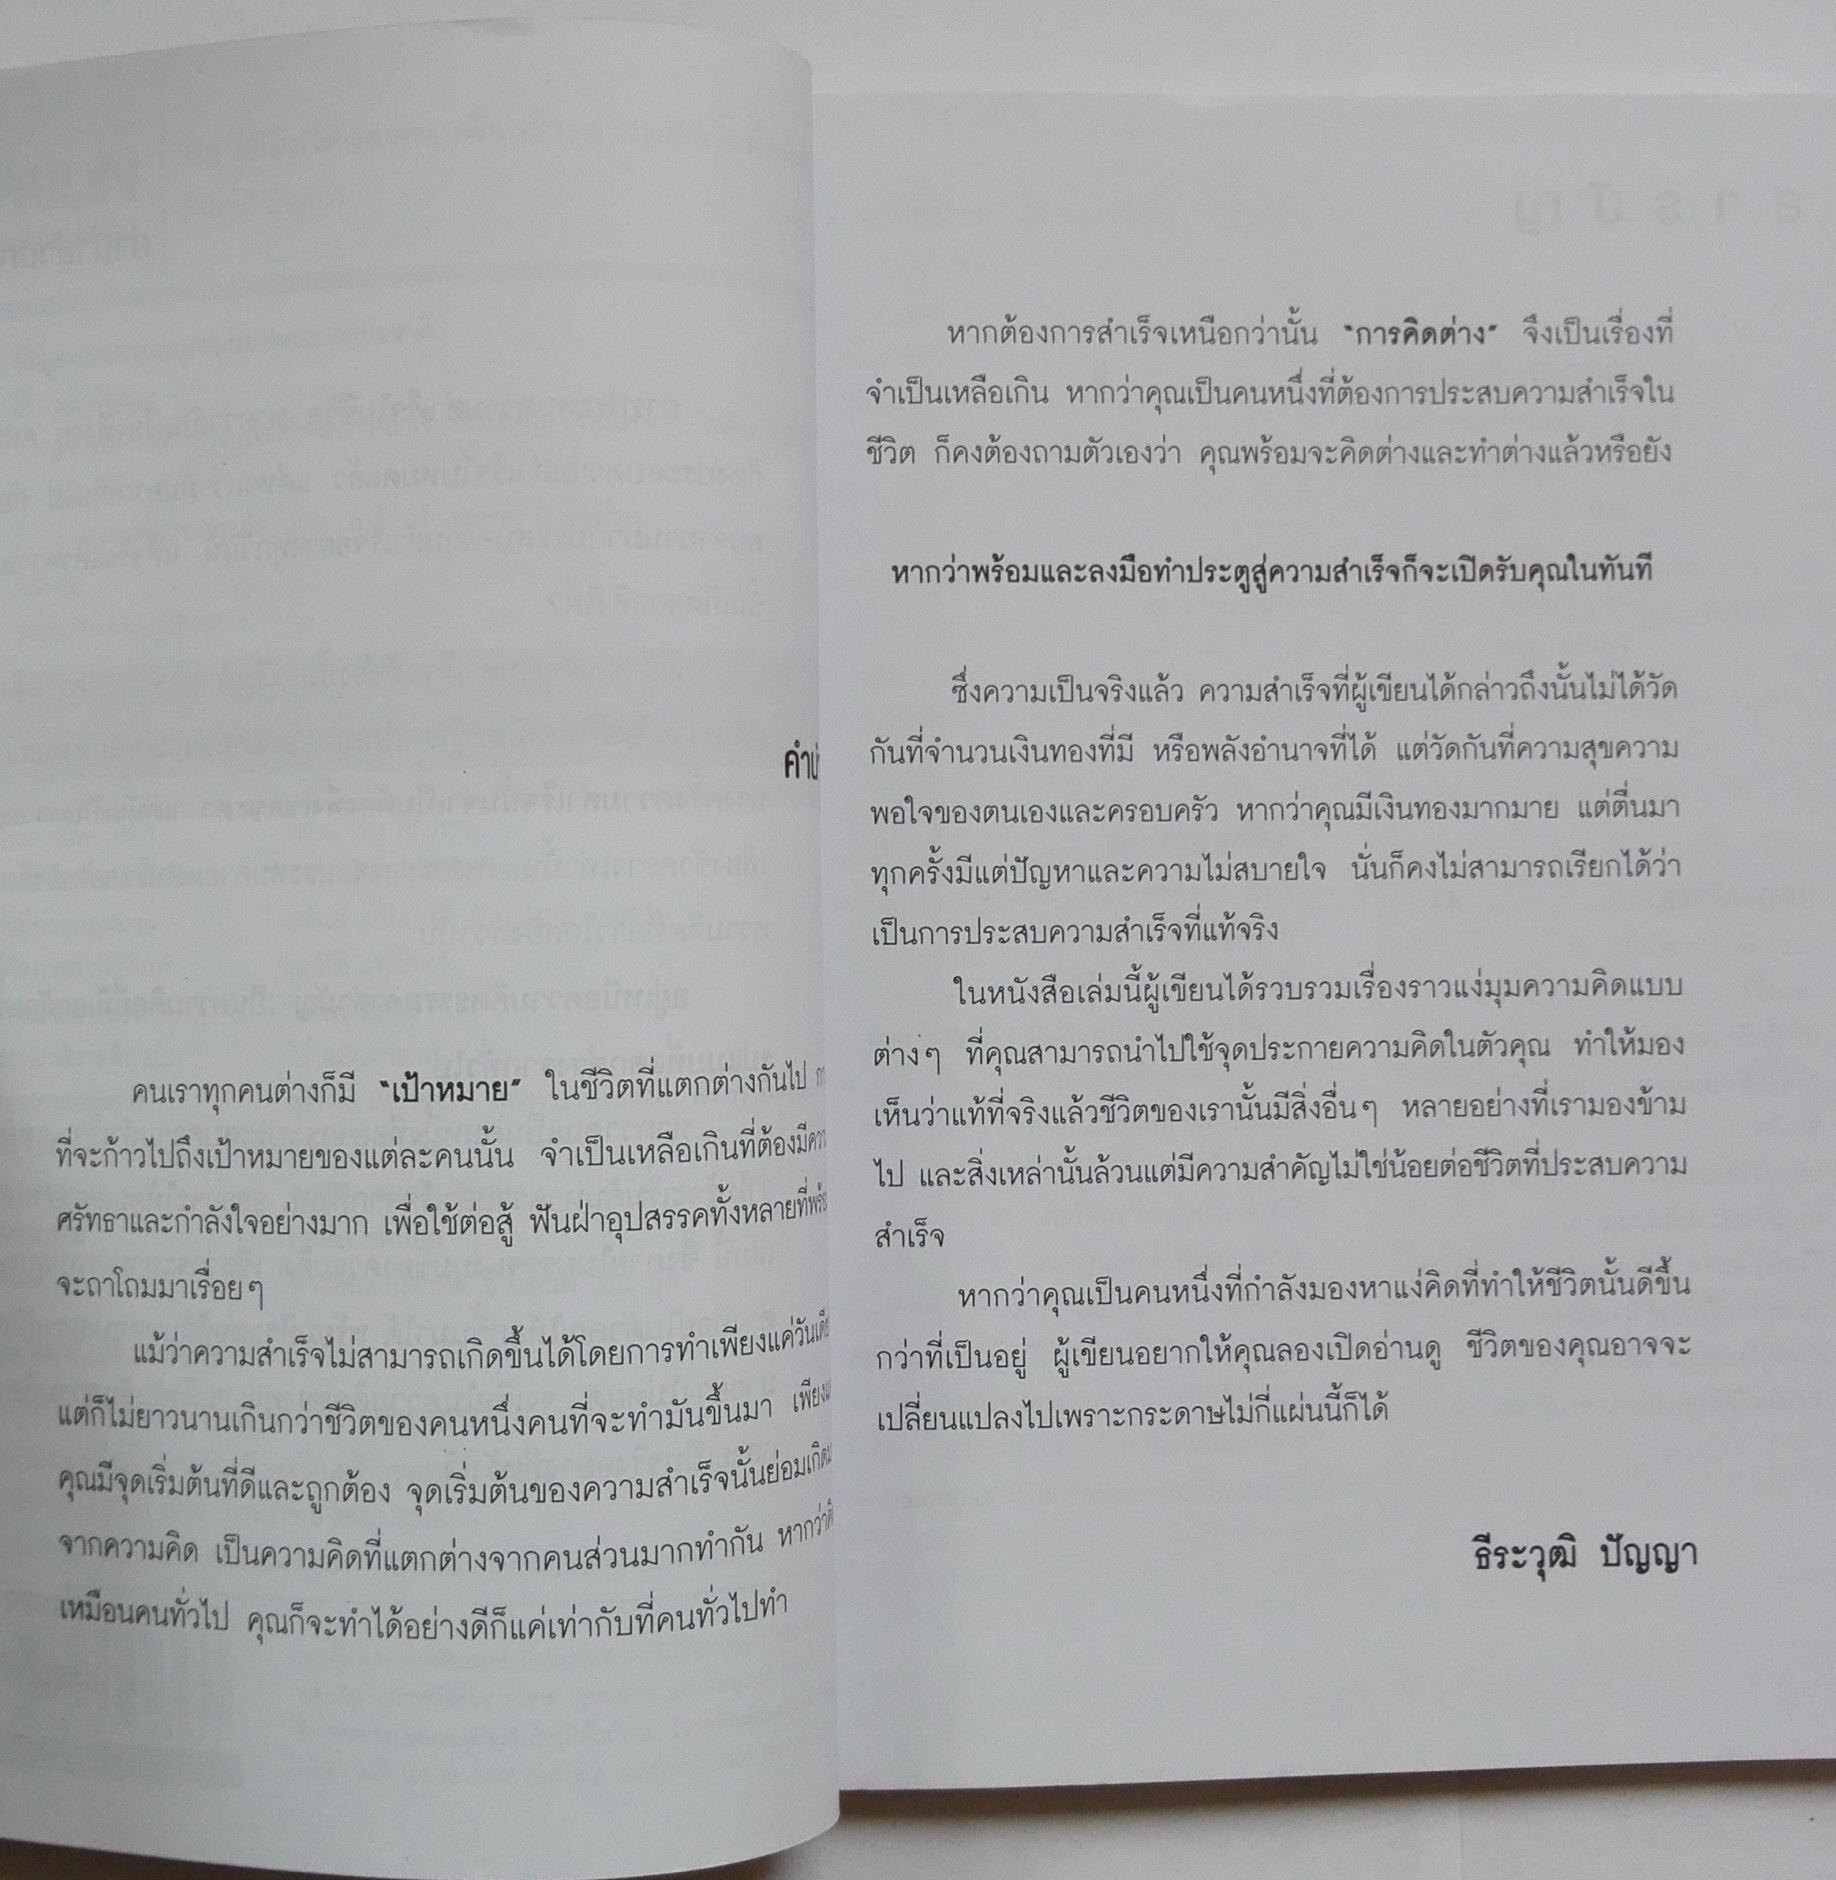 คนเราทุกคนต่างก็มี "เป้าหมาย" ในชีวิตที่แตกต่างกันไป
ที่จะก้าวไปถึงเป้าหมายของแต่ละคนนั้น จำเป็นเหลือเกินที่ต้องมี
ศรัทธาและกำลังใจอย่างมาก เพื่อใช้ต่อสู้ ฟันฝ่าอุปสรรคทั้งหลายที่
จะถาโถมมาเรื่อยๆ
แม้ว่าความสำเร็จไม่สามารถเกิดขึ้นได้โดยการทำเพียงแค่
แต่ก็ไม่ยาวนานเกินกว่าชีวิตของคนหนึ่งคนที่จะทำมันขึ้นมา
คุณมีจุดเริ่มต้นที่ดีและถูกต้อง จุดเริ่มต้นของความสำเร็จนั้นย่อม
จากความคิด เป็นความคิดที่แตกต่างจากคนส่วนมากทำกัน หากว่า
เหมือนคนทั่วไป คุณก็จะทำได้อย่างดีก็แค่เท่ากับที่คนทั่วไปทำ
หากต้องการสำเร็จเหนือกว่านั้น "การคิดต่าง" จึงเป็นเรื่องที่
จำเป็นเหลือเกิน หากว่าคุณเป็นคนหนึ่งที่ต้องการประสบความสำเร็จใน
ชีวิต ก็คงต้องถามตัวเองว่า คุณพร้อมจะคิดต่างและทำต่างแล้วหรือยัง
หากว่าพร้อมและลงมือทำประตูสู่ความสำเร็จก็จะเปิดรับคุณในทันที
ซึ่งความเป็นจริงแล้ว ความสำเร็จที่ผู้เขียนได้กล่าวถึงนั้นไม่ได้วัด
กันที่จำนวนเงินทองที่มี หรือพลังอำนาจที่ได้ แต่วัดกันที่ความสุขความ
พอใจของตนเองและครอบครัว หากว่าคุณมีเงินทองมากมาย แต่ตื่นมา
ทุกครั้งมีแต่ปัญหาและความไม่สบายใจ นั่นก็คงไม่สามารถเรียกได้ว่า
เป็นการประสบความสำเร็จที่แท้จริง
ในหนังสือเล่มนี้ผู้เขียนได้รวบรวมเรื่องราวแง่มุมความคิดแบบ
ต่างๆ ที่คุณสามารถนำไปใช้จุดประกายความคิดในตัวคุณ ทำให้มอง
เห็นว่าแท้ที่จริงแล้วชีวิตของเรานั้นมีสิ่งอื่นๆ หลายอย่างที่เรามองข้าม
ไป และสิ่งเหล่านั้นล้วนแต่มีความสำคัญไม่ใช่น้อยต่อชีวิตที่ประสบความ
สำเร็จ
หากว่าคุณเป็นคนหนึ่งที่กำลังมองหาแง่คิดที่ทำให้ชีวิตนั้นดีขึ้น
กว่าที่เป็นอยู่ ผู้เขียนอยากให้คุณลองเปิดอ่านดู ชีวิตของคุณอาจจะ
เปลี่ยนแปลงไปเพราะกระดาษไม่กี่แผ่นนี้ก็ได้
ธีระวุฒิ ปัญญา